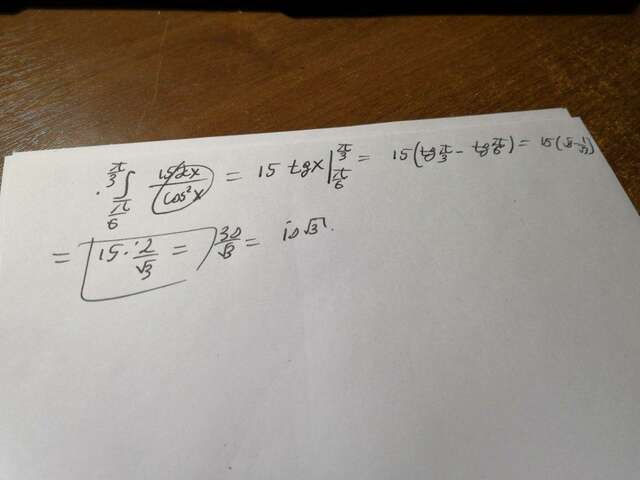 ∫_{π/6}^{π/3} 15dx/cos²x = 15 tgx |_{π/6}^{π/3} = 15(tg π/3 - tg π/6) = 15(√3 - 1/√3)
= 15 · 2/√3 = 30/√3 = 10√3.